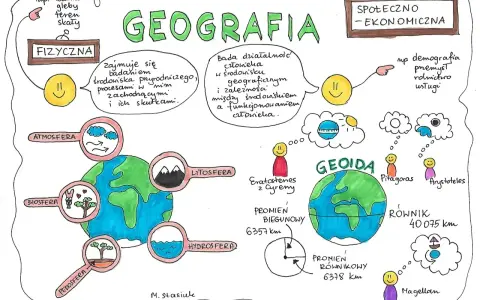 gleby
teren
skały
GEOGRAFIA
SPOŁECZNO
-EKONOMICZNA
FIZYCZNA
Zajmuje się
badaniem
środowiska przyrodniczego,
procesami w nim
zachodzącymi
i ich skutkami.
Bada działalność
człowieka
w środowisku
geograficznym
i zależności
między środowiskiem
a funkcjonowaniem
człowieka.
np demografia
przemysł
rolnictwo
usługi
ATMOSFERA
LITOSFERA
BIOSFERA
HYDROSFERA
PEDOSFERA
Eratostenes
z Cyreny
GEOIDA
Pitagoras
Arystoteles
PROMIEŃ
BIEGUNOWY
6357 km
RÓWNIK
40 075 km
PROMIEŃ
RÓWNIKOWY
6378 km
Magellan
M. Stasiuk